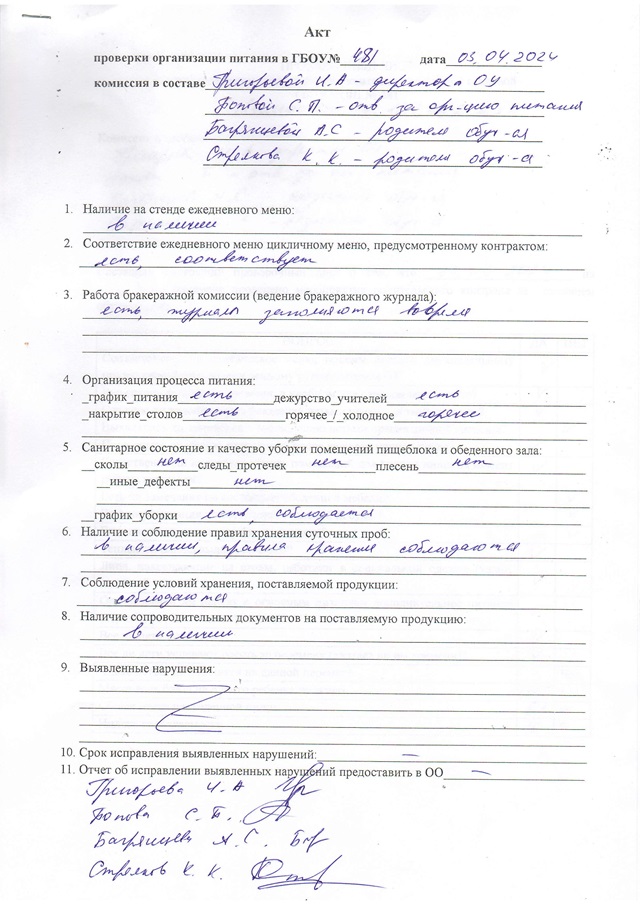 Акт
проверки организации питания в ГБОУ№ 481 дата 03.04.2024
комиссия в составе Григорьевой И.А - директора ОУ
Поповой С.П. - отв. за орг-цию питания
Багрянцевой А.С - родителя обуч-ся
Стрелкова К.К. - родителя обуч-ся
1. Наличие на стенде ежедневного меню:
в наличии
2. Соответствие ежедневного меню цикличному меню, предусмотренному контрактом:
есть, соответствует
3. Работа бракеражной комиссии (ведение бракеражного журнала):
есть, журналы заполняются вовремя
4. Организация процесса питания:
_график_питания есть дежурство_учителей есть
_накрытие_столов есть горячее_/_холодное горячее
5. Санитарное состояние и качество уборки помещений пищеблока и обеденного зала:
__сколы нет следы_протечек нет плесень нет
__иные_дефекты нет
__график_уборки есть, соблюдается
6. Наличие и соблюдение правил хранения суточных проб:
в наличии, правила хранения соблюдаются
7. Соблюдение условий хранения, поставляемой продукции:
соблюдаются
8. Наличие сопроводительных документов на поставляемую продукцию:
в наличии
9. Выявленные нарушения:
10. Срок исправления выявленных нарушений: —
11. Отчет об исправлении выявленных нарушений предоставить в ОО —
Григорьева И.А
Попова С.П.
Багрянцева А.С.
Стрелков К.К.